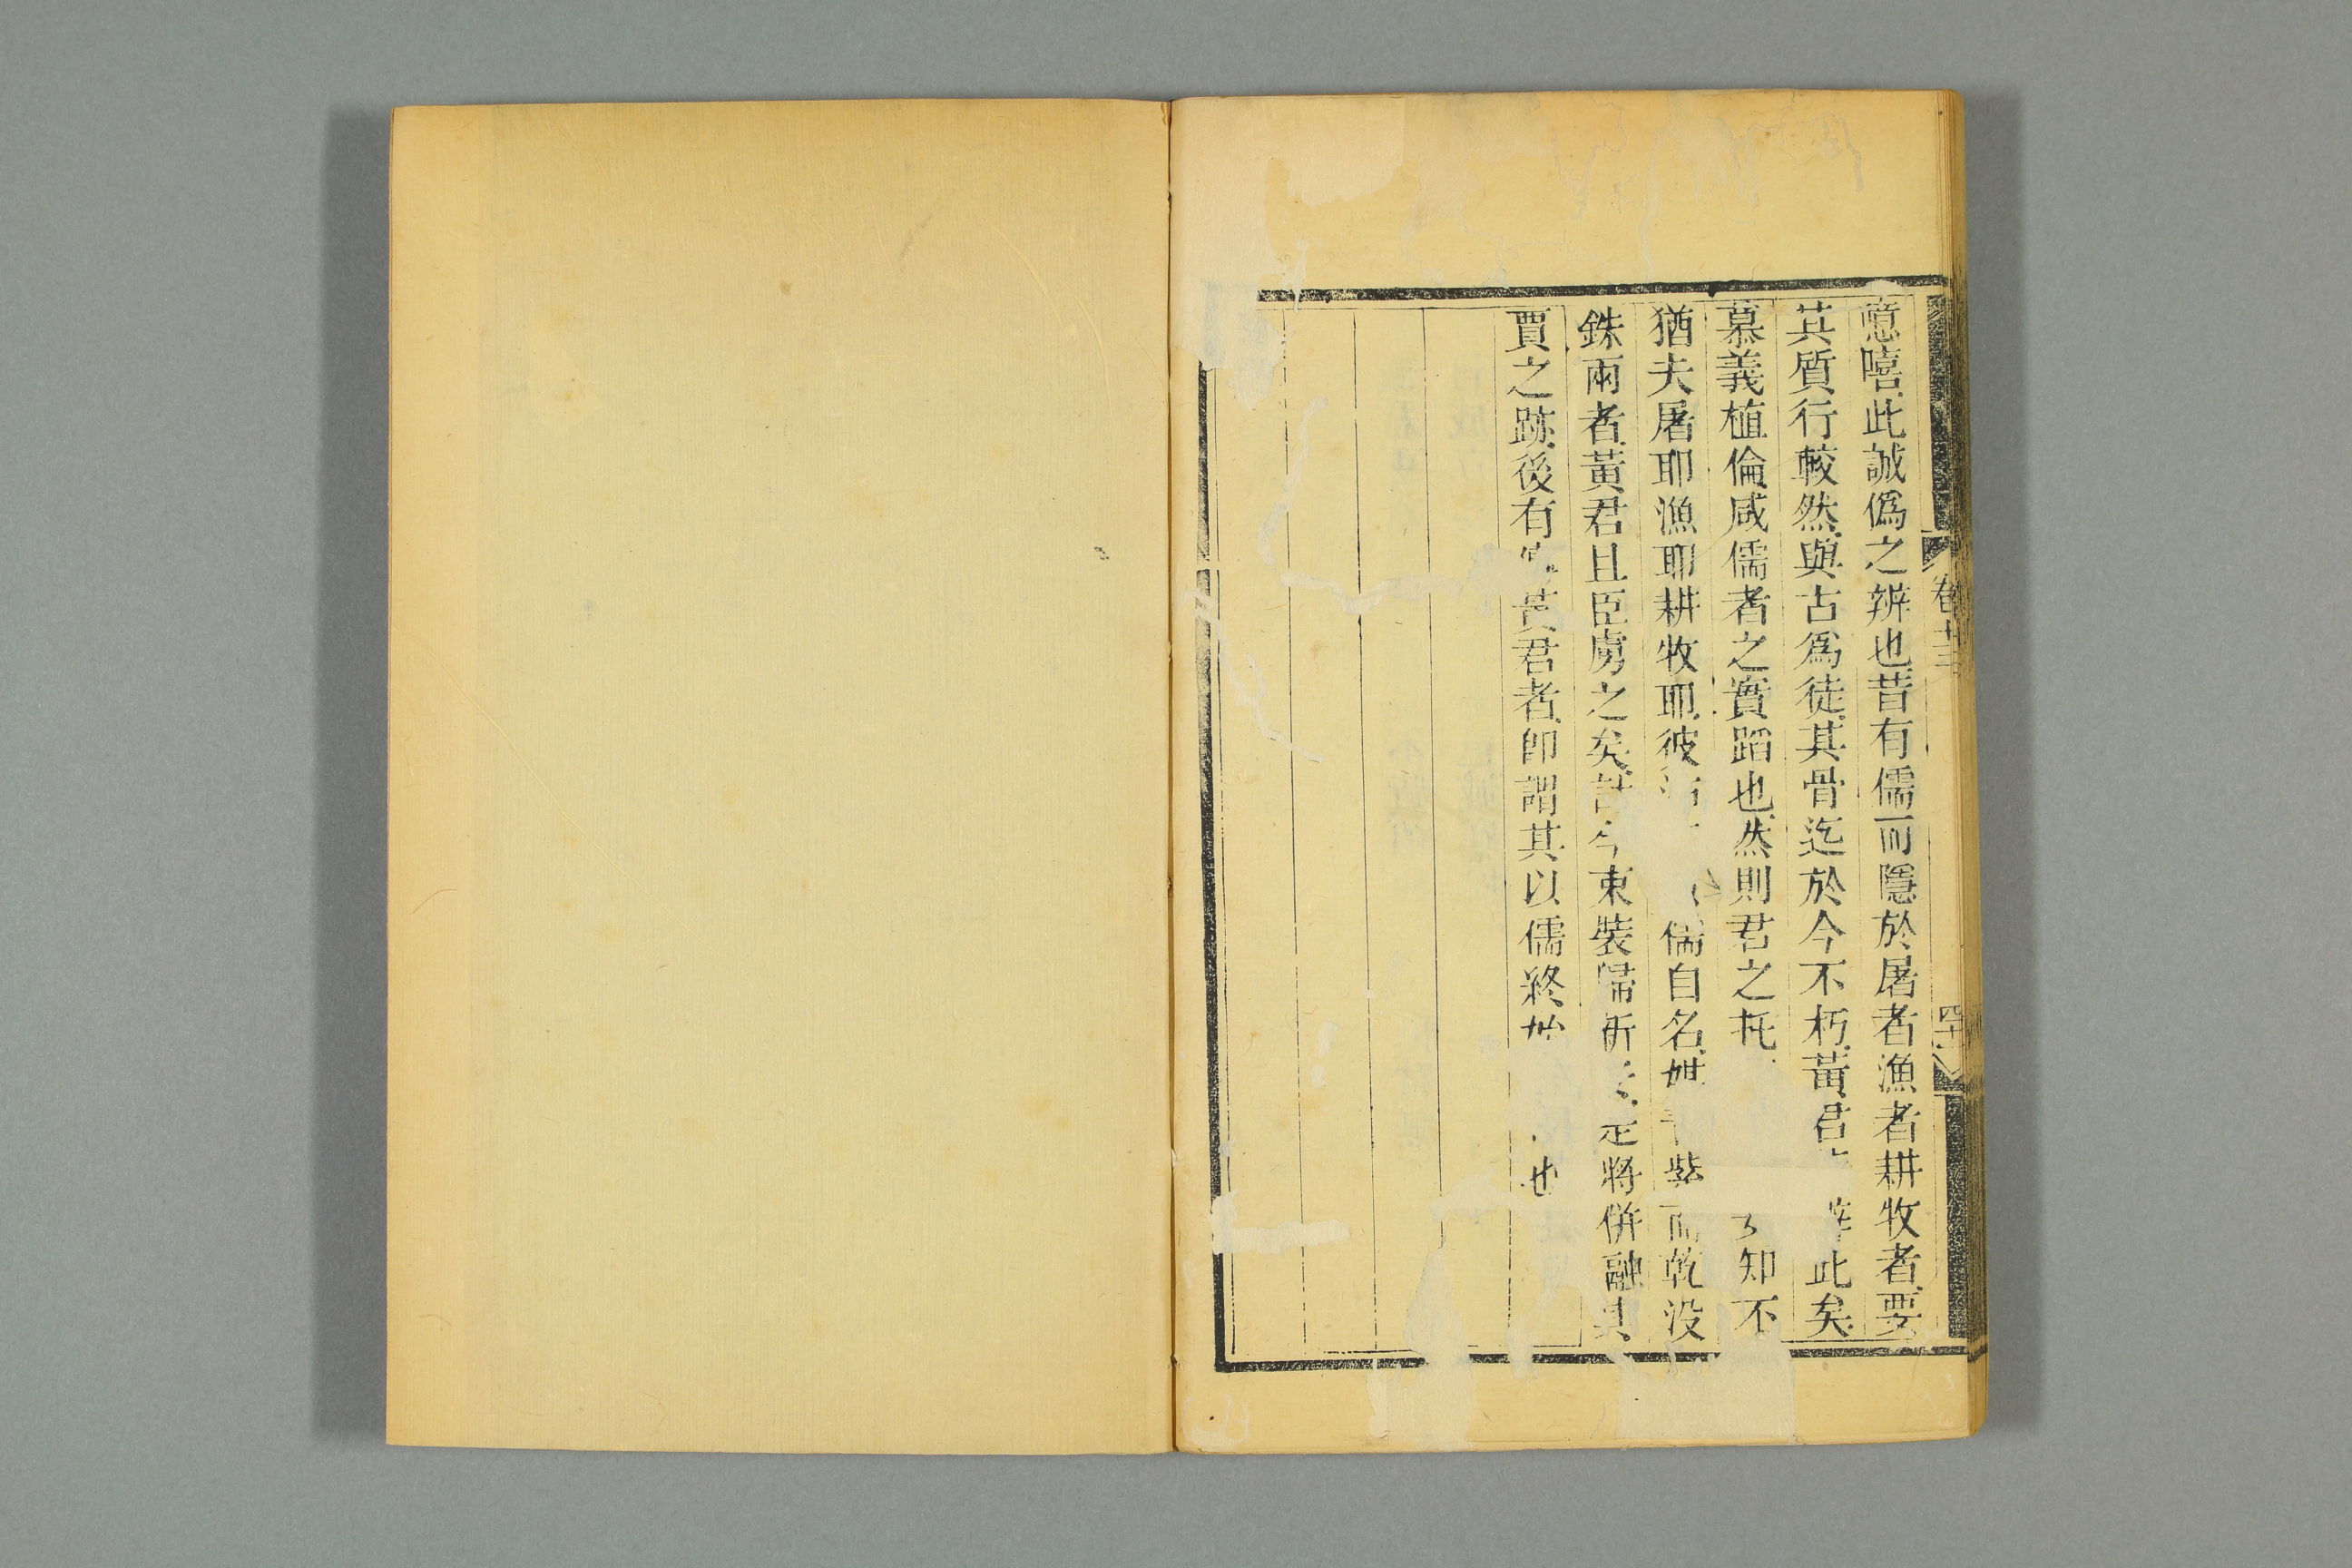 卷十三
四十
噫嘻此誠僞之辨也昔有儒而隱於屠者漁者耕牧者要
其質行較然與古爲徒其骨迄於今不朽黃君此矣
慕義植倫咸儒者之實蹈也然則君之托知不
猶夫屠耶漁耶耕牧耶彼儒自名紫而乾没
銖兩者黃君且臣虜之矣今束裝歸將併融其
賈之跡後有黃君者卽謂其以儒終始也